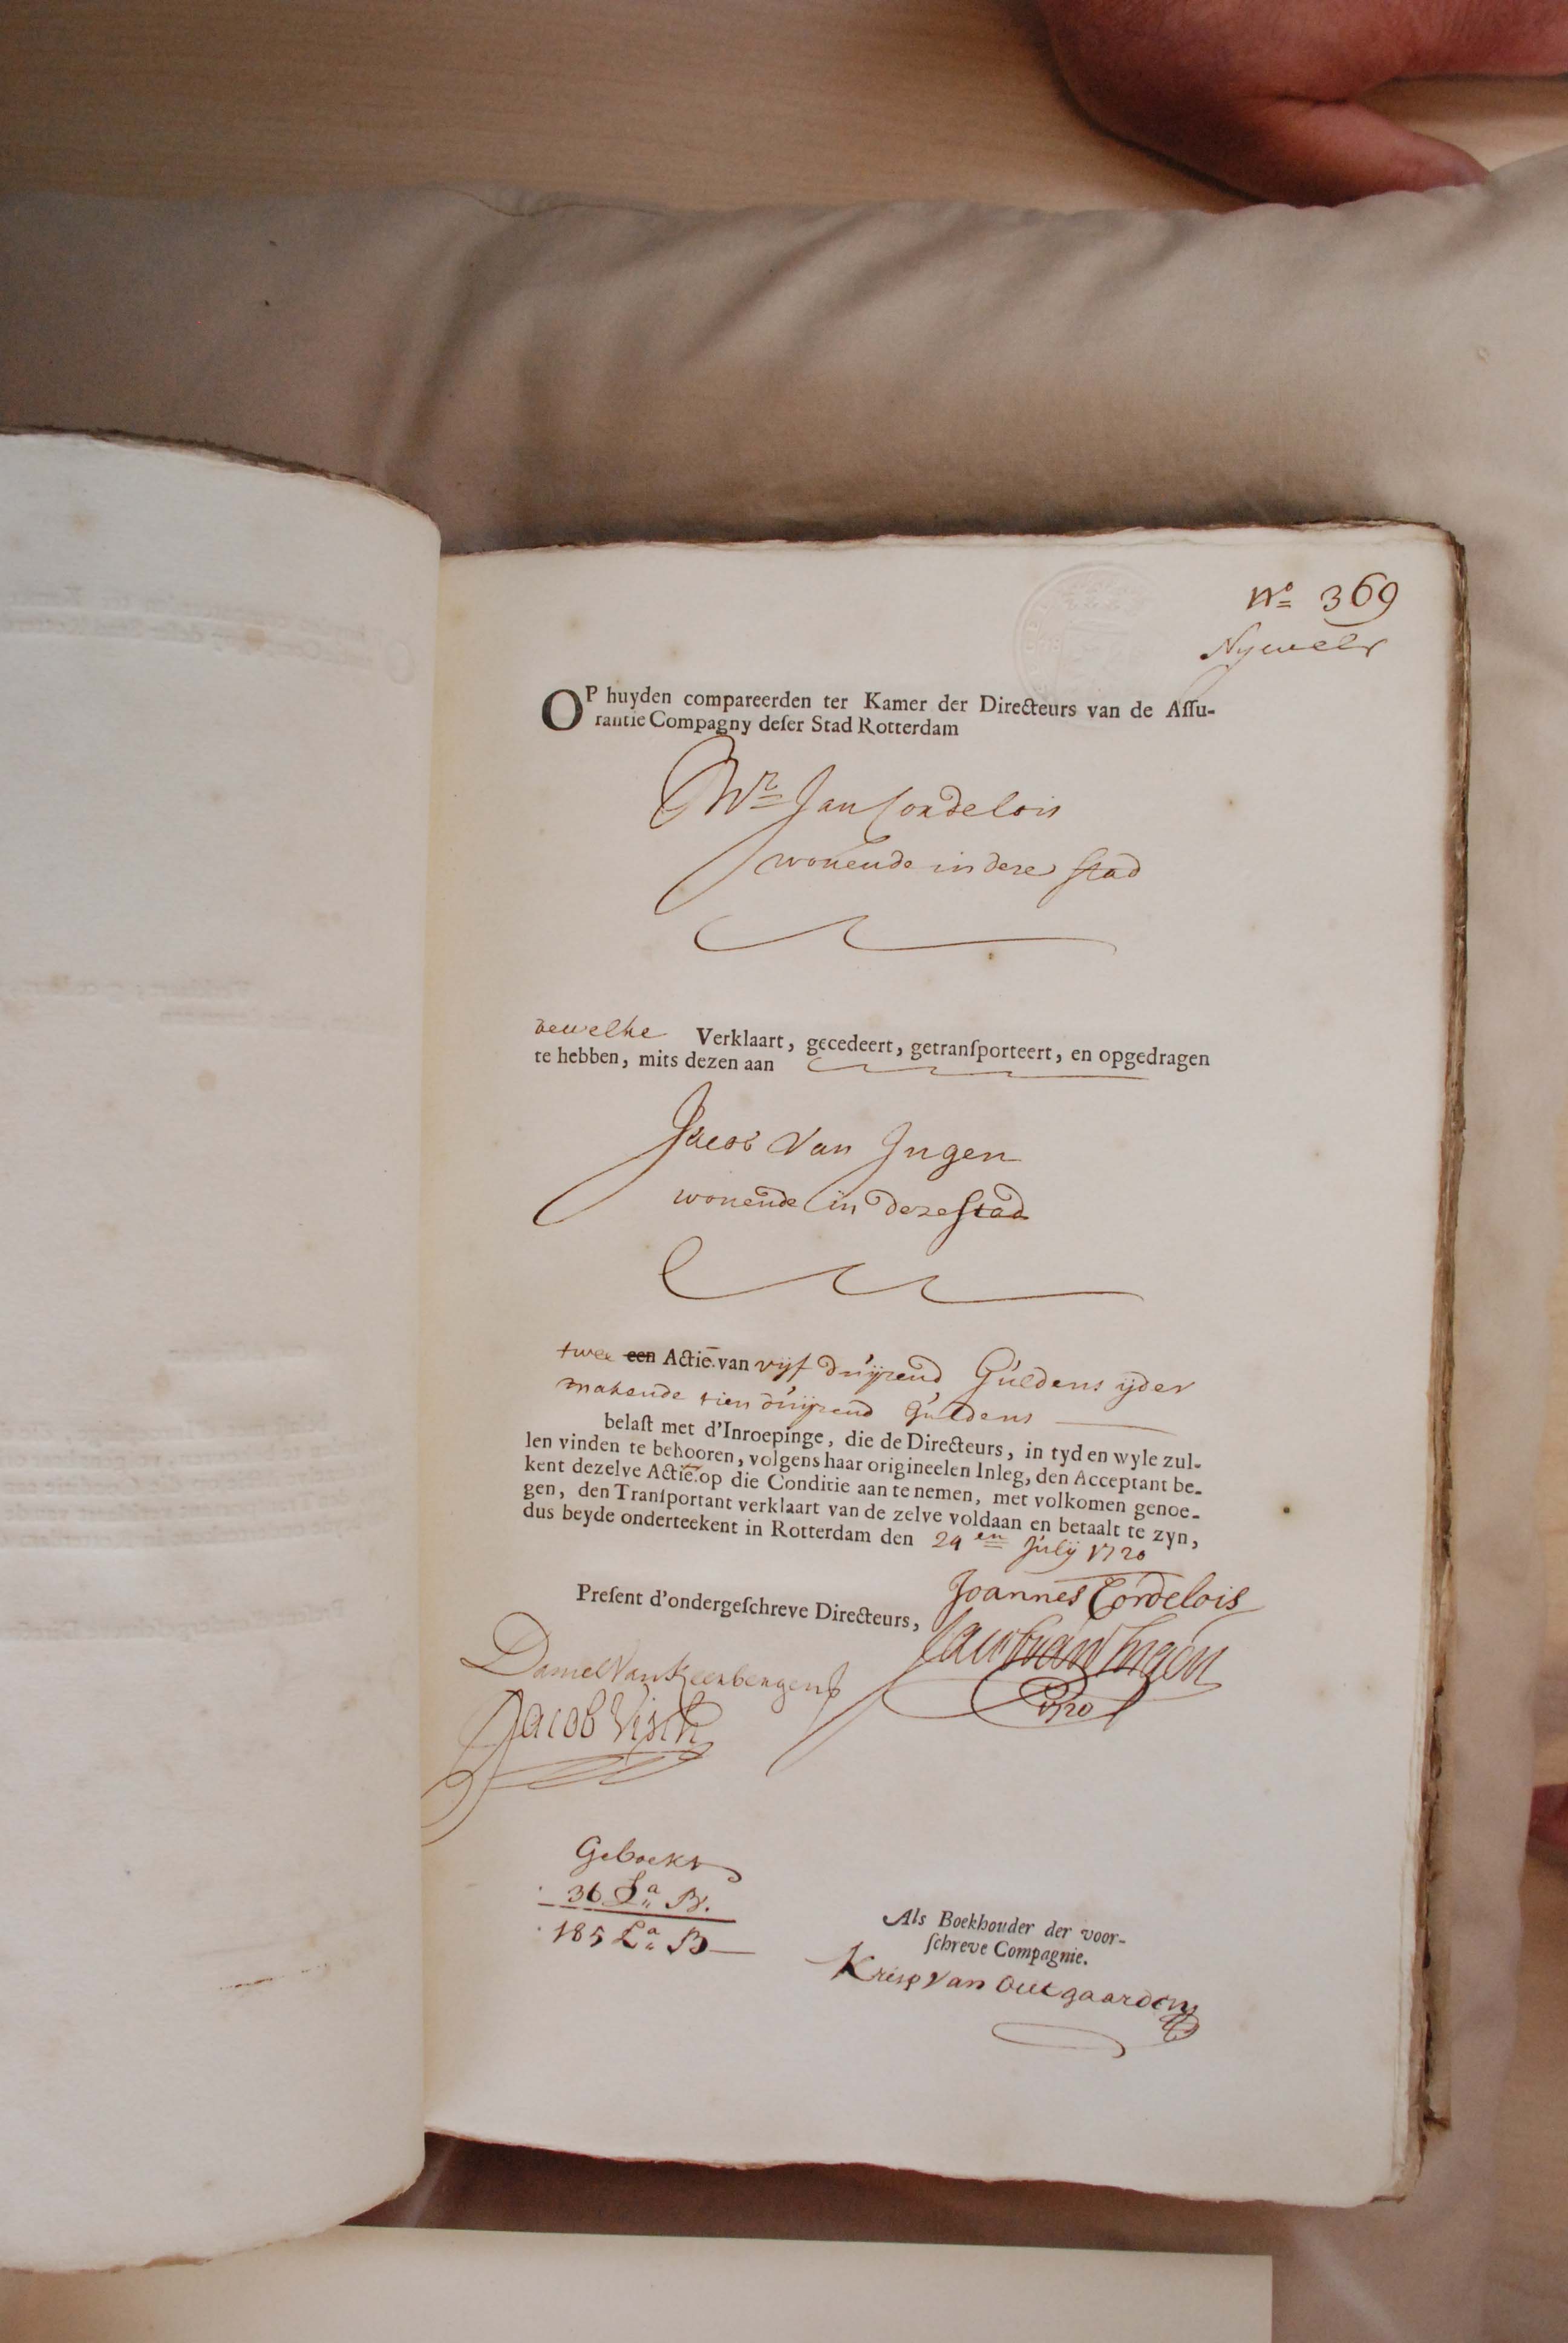 No 369
OP huyden compareerden ter Kamer der Directeurs van de Assu-
rantie Compagny deser Stad Rotterdam
Mr Jan Cordelois
wonende in deze stad
dewelke Verklaart, gecedeert, getransporteert, en opgedragen
te hebben, mits dezen aan
Jacob Van Ingen
wonende in deze stad
twee een Actie. van vijf duijzend Guldens ijder
makende tien duijzend Guldens
belast met d'Inroepinge, die de Directeurs, in tyd en wyle zul-
len vinden te behooren, volgens haar origineelen Inleg, den Acceptant be-
kent dezelve Actie. op die Conditie aan te nemen, met volkomen genoe-
gen, den Transportant verklaart van de zelve voldaan en betaalt te zyn,
dus beyde onderteekent in Rotterdam den 29en Julij 1720
Joannes Cordelois
Present d'ondergeschreve Directeurs,
Jacob van Ingen
1720
Daniel Van Keerbergen
Jacob Visch
Geboekt
36 La B.
185 La B
Als Boekhouder der voor-
schreve Compagnie.
Krisp Van Outgaarden